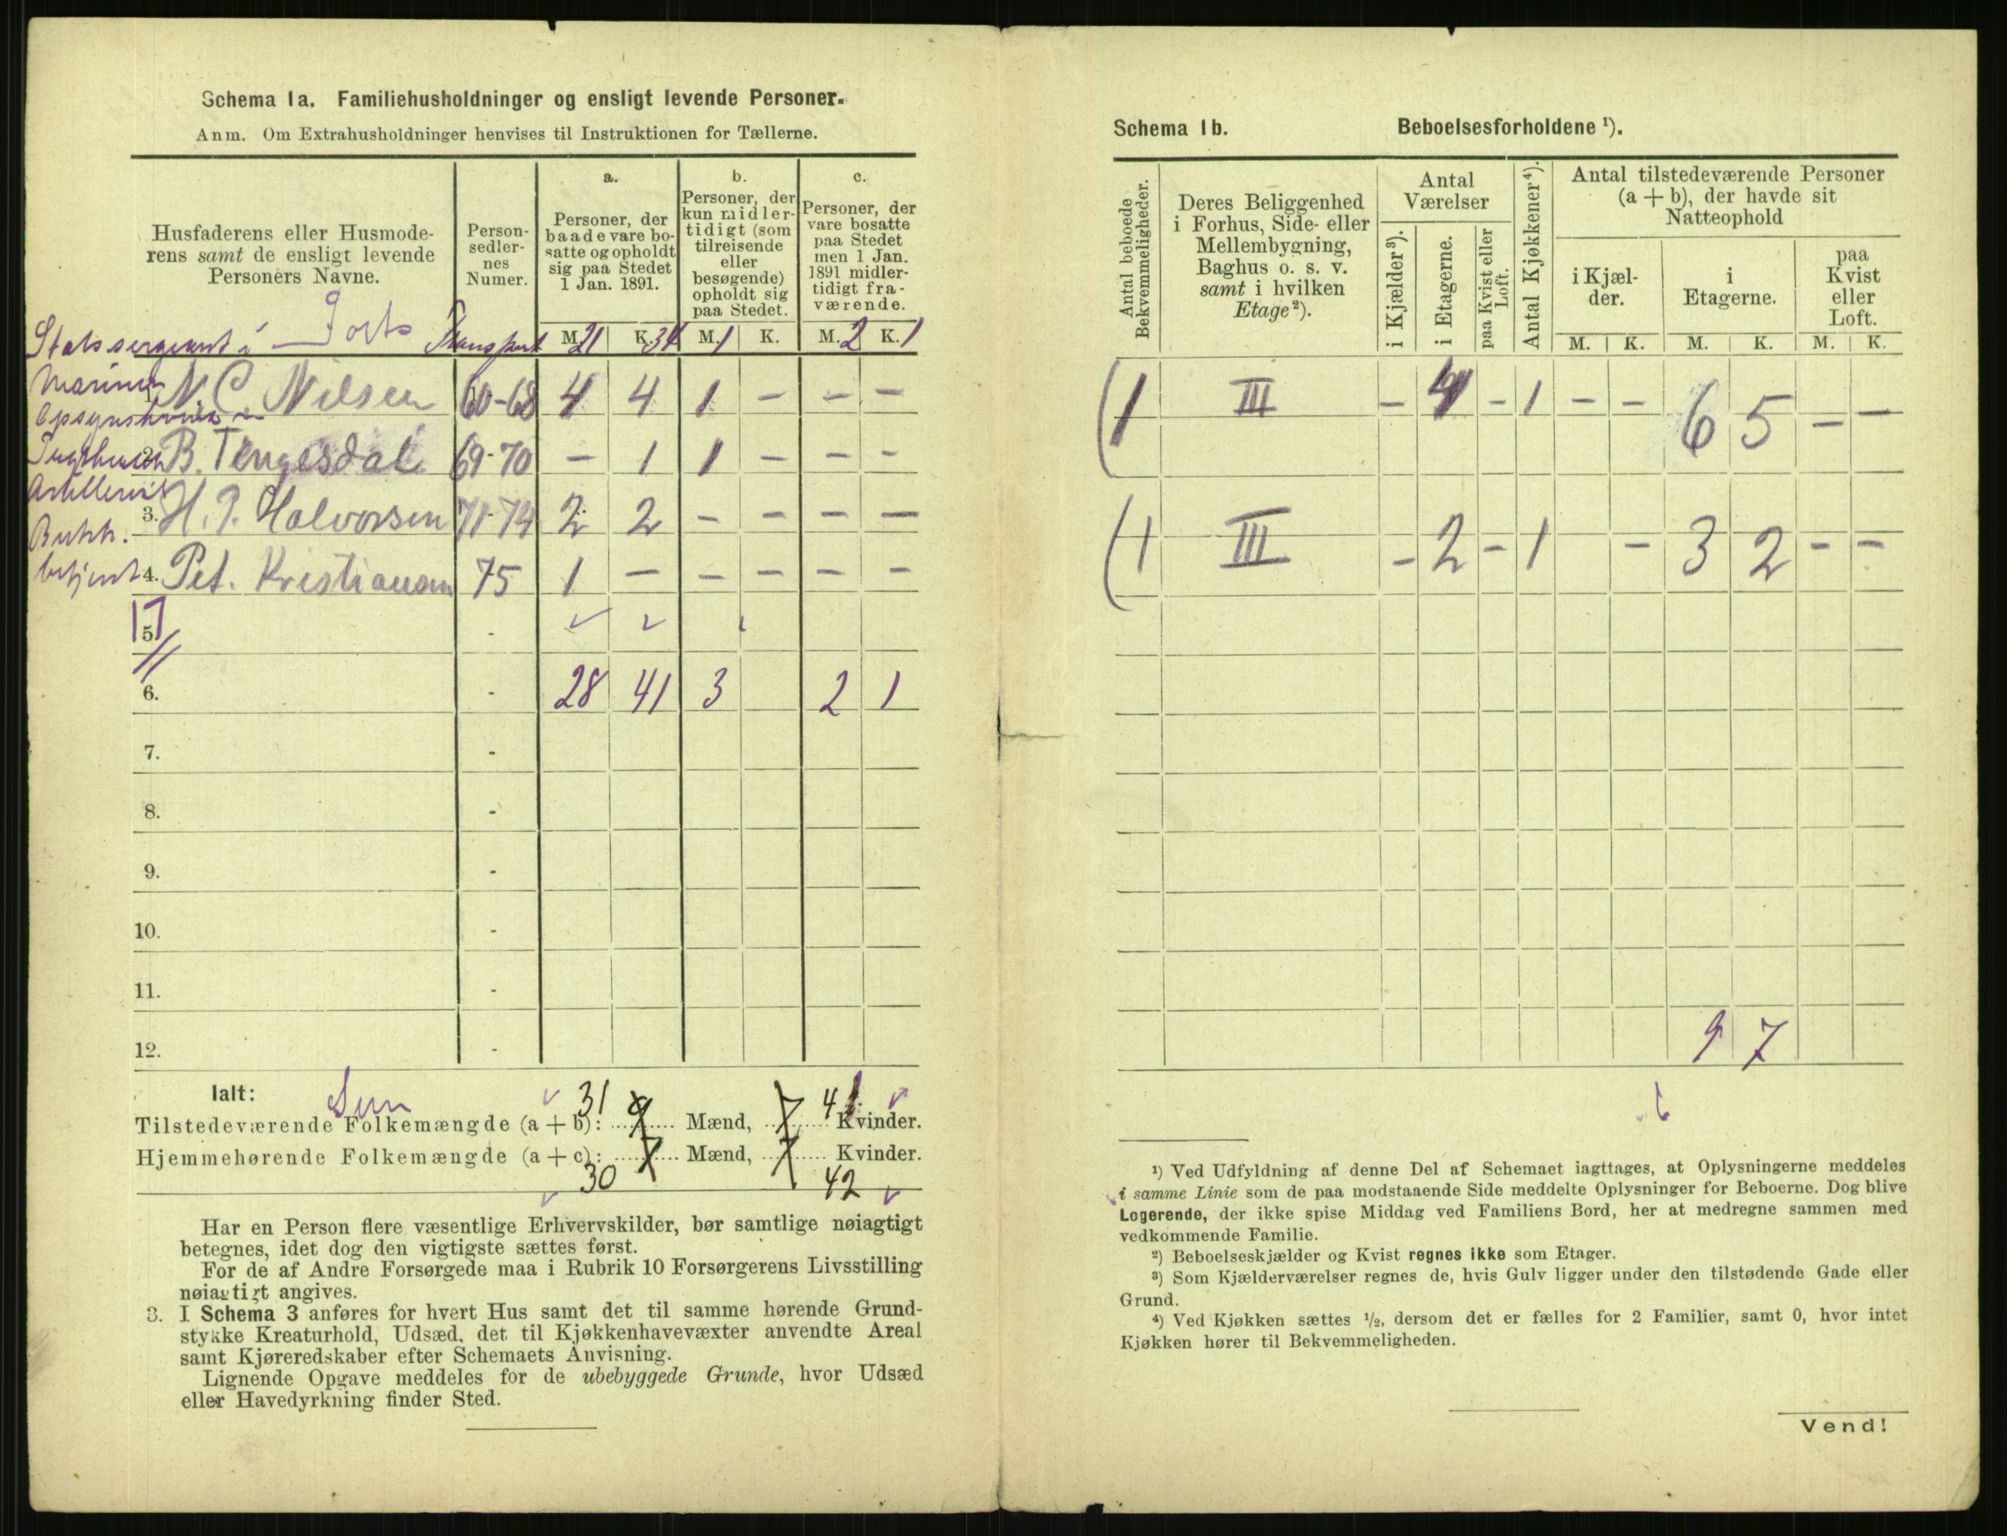 Schema 1a. Familiehusholdninger og ensligt levende Personer.
Anm. Om Extrahusholdninger henvises til Instruktionen for Tællerne.
Husfaderens eller Husmode-
rens samt de ensligt levende
Personers Navne.
Person-
sedler-
nes
Numer.
a.
Personer, der
baade vare bo-
satte og opholdt
sig paa Stedet
1 Jan. 1891.
b.
Personer, der
kun midler-
tidigt (som
tilreisende
eller
besøgende)
opholdt sig
paa Stedet.
c.
Personer, der
vare bosatte
paa Stedet
men 1 Jan.
1891 midler-
tidigt fra-
værende.
Statssergeant i Transport M. 21 K. 34 M. 1 K. M. 2 K. 1
Marinen
1. N C Nilsen 60-68 4 4 1 - - -
2. B. Tengesdal 69-70 - 1 1 - - -
3. H. P. Halvorsen 71-74 2 2 - - - -
4. Pet. Kristiansen 75 1 - - - - -
17
5.
6. 28 41 3 2 1
7.
8.
9.
10.
11.
12.
Ialt:
Tilstedeværende Folkemængde (a + b): 31 9 Mænd, 7 41 Kvinder.
Hjemmehørende Folkemængde (a + c): 7 Mænd, 7 Kvinder.
30 42
Har en Person flere væsentlige Erhvervskilder, bør samtlige nøiagtigt
betegnes, idet dog den vigtigste sættes først.
For de af Andre Forsørgede maa i Rubrik 10 Forsørgerens Livsstilling
nøiagtigt angives.
3. I Schema 3 anføres for hvert Hus samt det til samme hørende Grund-
stykke Kreaturhold, Udsæd, det til Kjøkkenhavevæxter anvendte Areal
samt Kjøreredskaber efter Schemaets Anvisning.
Lignende Opgave meddeles for de ubebyggede Grunde, hvor Udsæd
eller Havedyrkning finder Sted.
Schema 1b. Beboelsesforholdene ¹).
Antal beboede
Bekvemmeligheder.
Deres Beliggenhed
i Forhus, Side- eller
Mellembygning,
Baghus o. s. v.
samt i hvilken
Etage ²).
Antal
Værelser
i Kjælder ³).
i Etagerne.
paa Kvist eller
Loft.
Antal Kjøkkener ⁴).
Antal tilstedeværende Personer
(a + b), der havde sit
Natteophold
i Kjæl-
der.
i
Etagerne.
paa
Kvist
eller
Loft.
M. K. M. K. M. K.
1 III - 4 - 1 - - 6 5 - -
1 III - 2 - 1 - 3 2 - -
9 7
¹) Ved Udfyldning af denne Del af Schemaet iagttages, at Oplysningerne meddeles
i samme Linie som de paa modstaaende Side meddelte Oplysninger for Beboerne. Dog blive
Logerende, der ikke spise Middag ved Familiens Bord, her at medregne sammen med
vedkommende Familie.
²) Beboelseskjælder og Kvist regnes ikke som Etager.
³) Som Kjælderværelser regnes de, hvis Gulv ligger under den tilstødende Gade eller
Grund.
⁴) Ved Kjøkken sættes ½, dersom det er fælles for 2 Familier, samt 0, hvor intet
Kjøkken hører til Bekvemmeligheden.
Vend!